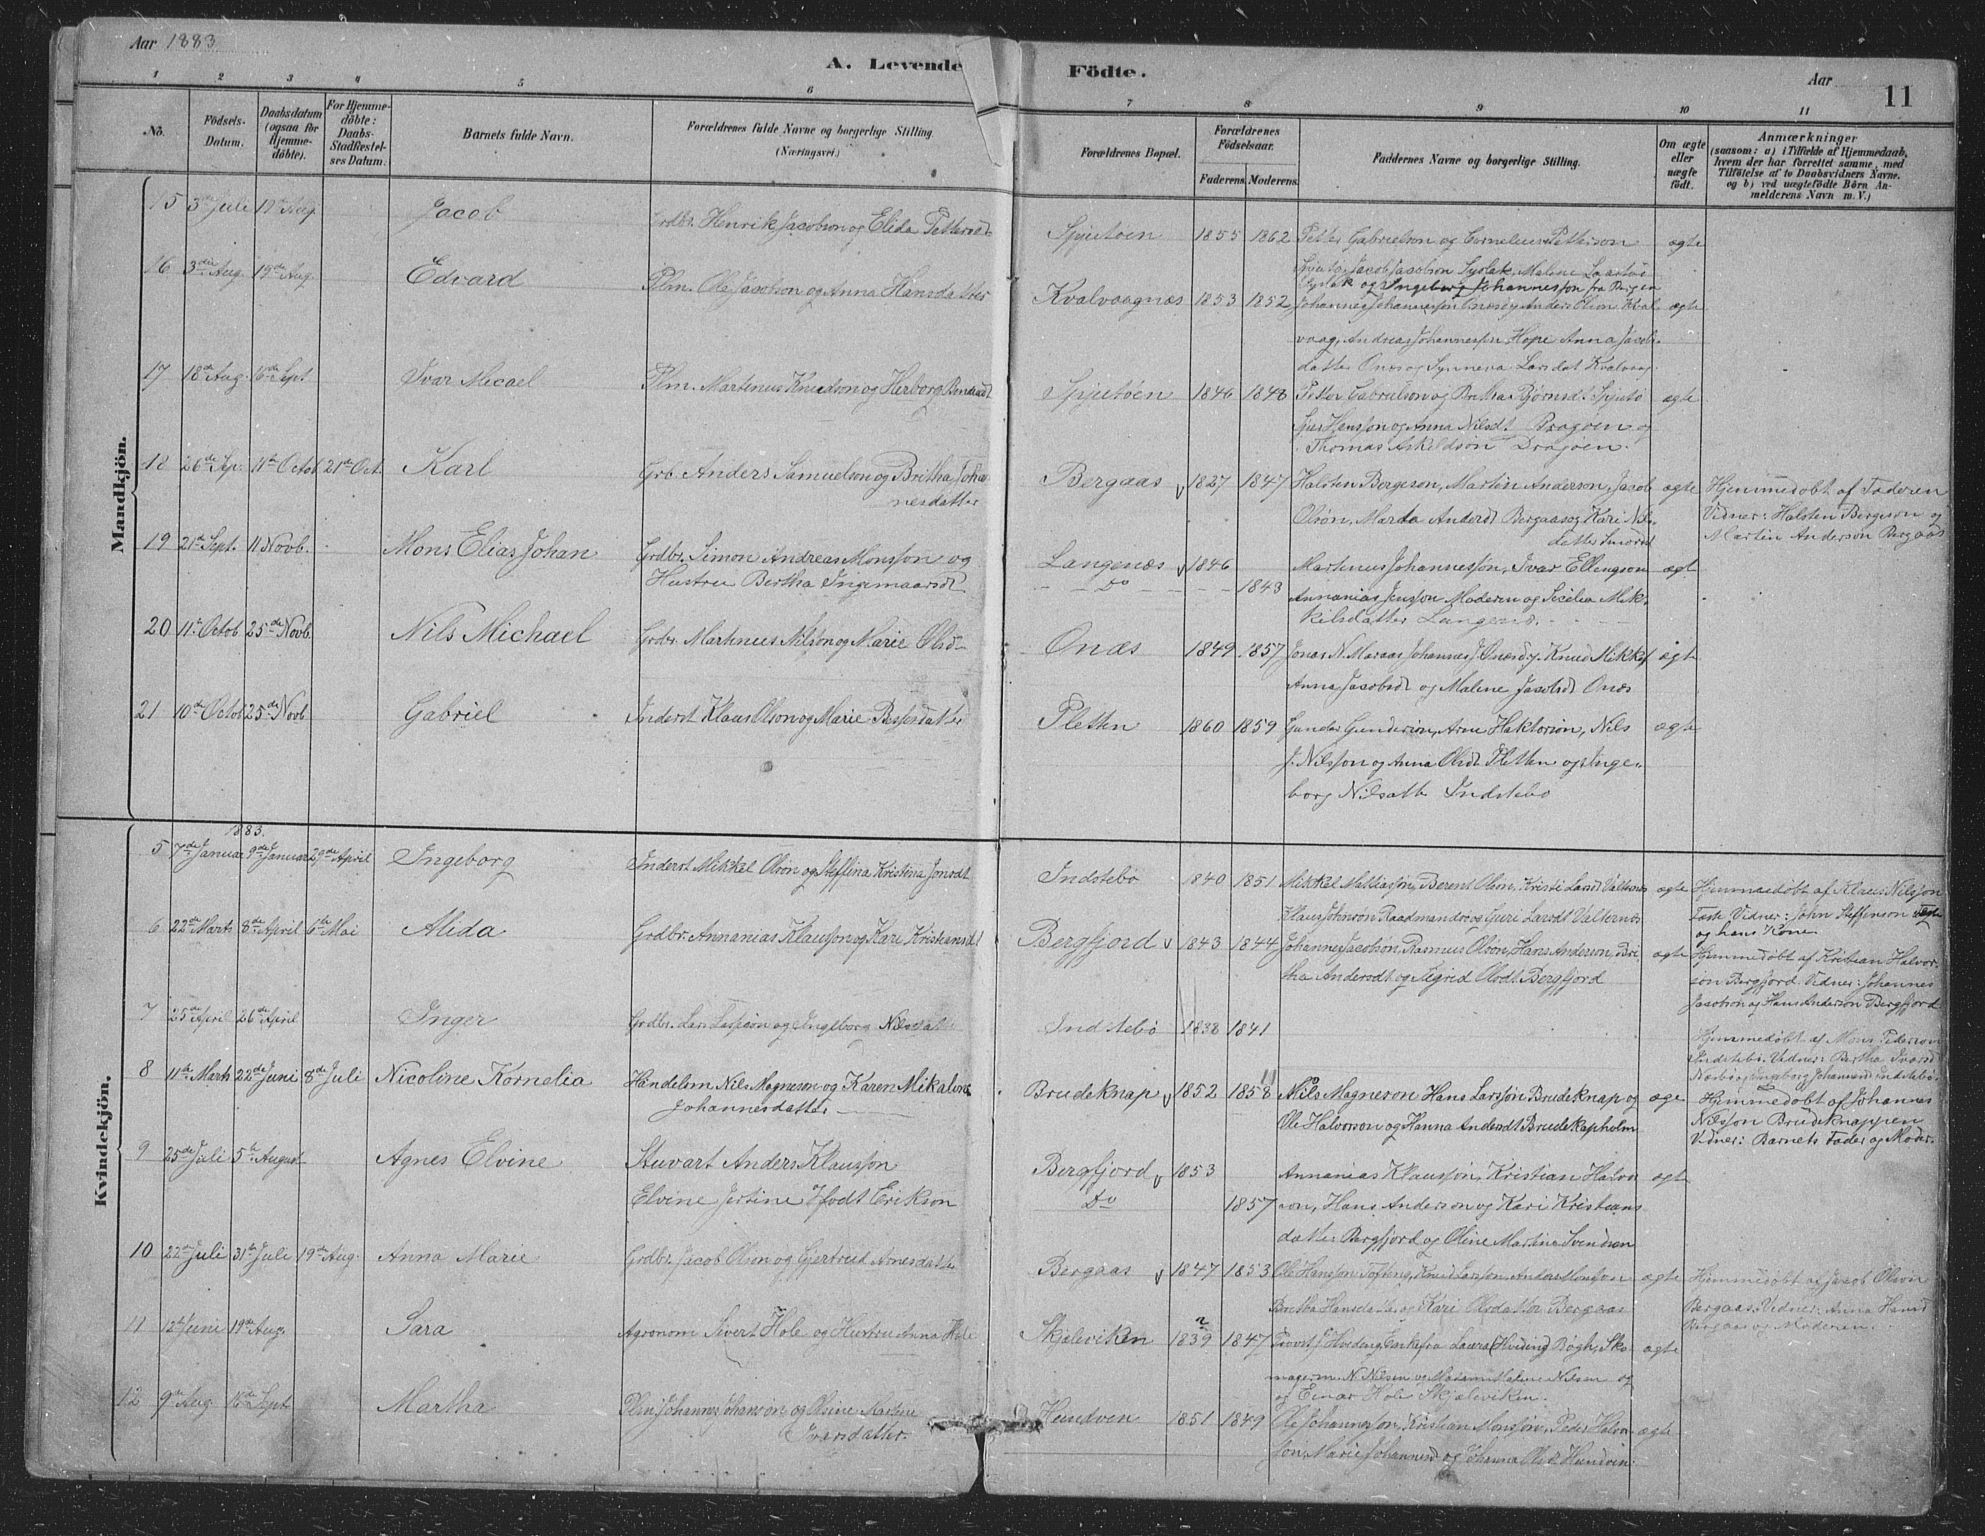 Aar 1883
A. Levende Födte.
Aar
11
1 2 3 4 5 6 7 8 9 10 11
No.
Födsels-Datum.
Daabsdatum (ogsaa for Hjemme-döbte).
For Hjemme-döbte: Daabs-Stadfæstel-ses Datum.
Barnets fulde Navn.
Forældrenes fulde Navne og borgerlige Stilling.
(Næringsvei.)
Forældrenes Bopæl.
Forældrenes Födselsaar.
Faderens. Moderens.
Faddernes Navne og borgerlige Stilling.
Om ægte eller uægte födt.
Anmærkninger
(saasom: a) i Tilfælde af Hjemmedaab,
hvem der har forrettet samme, med
Tilföielse af to Daabsvidners Navne.
og b) ved uægtefödte Börn An-
melderens Navn m. V.)
Mandkjön.
15 3de Juli 19de Aug. Jacob Grdbr. Henrik Jacobson og Elida Pettersd Spjutøen 1855 1862 Petter Gabrielson og Cornelius Petterson ægte
Jacob Jacobson Malene
og Ingeborg Johannesson fra Bergen
16 3die Aug. 19de Aug. Edvard Plm. Ole Jacobson og Anna Hansdatter Kvalvaagnæs 1853 1852 Johannes Johannesson Onæs og Anders Olson Kval- ægte
vaag, Andreas Johannesson Hope Anna Jacobs-
datter Onæs og Synneva Larsdat Kvalvaag
17 18de Aug. 16de Sept Ivar Micael Plm. Martinus Knudson og Herborg Spjutøen 1846 1848 Petter Gabrielson og Britha Bjørnsd. Spjutø ægte
og Anna Nilsdt Dragøen og
Thomas Askeldsøn Dragøen.
18 26de Sep. 11te Octob 21de Oct. Karl Grb. Anders Samuelson og Britha Johan-
nesdatter
Bergaas 1827 1847 Halsten Bergeson, Martin Anderson, Jacob ægte Hjemmedøbt af Faderen
Olsøn, Marta Andersdt Bergaas og Kari Nils- Vidner: Halsten Bergeson og
datter Martin Anderson Bergaas
19 21de Sept. 11 Novb. Mons Elias Johan Grdbr. Simon Andreas Monsson og
Hustru Bertha Ingemaarsdt
Langenæs 1846 Martinus Johannesson, Ivar Ellingson ægt
Do 1843 Annanias Jensson Moderen og Sicilia Mik-
kelsdatter Langenæs.
20 11te Octob 25de Novb. Nils Michael Grdbr. Martinus Nilson og Marie Olsd Onæs 1849 1857 Jonas N. Johannes J. Onæs og Knud Mikkels ægt
Anna Jacobsdt og Malene Jacobsdt Onæs
21 10de Octob 25de Novb. Gabriel Inderst Klaus Olson og Marie Plettn 1860 1859 Gunder Gunderson, Arne Haktorson, Nils ægte
J. Nilsson og Anna Olsdt Plettn og Inge-
borg Nilsdatt Indstebø
Kvindekjön.
1883.
5 7de Januar 9de Januar 29de April Ingeborg Inderst Mikkel Olson og Steffina Kristina Jonsdt Indstebø 1840 1851 Mikkel Mathiasson, Berent Olson, Kristi Larsd Valternæs ægte Hjemmedøbt af Klaus Nilsson
Klaus Johnson Raadmandsø og Guri Larsdt Valternæs Vidner: John Steffenson
og hans Kone
6 22de Marts 8de April 6te Mai Alida Grdbr. Annanias Klausson og Kari Kristiansdt Bergfjord 1843 1844 Johannes Jacobson, Rasmus Olson, Hans Anderson, Bri- ægte Hjemmedøbt af Kristian Halvor-
tha Andersdt og Sigrid Olsdt. Bergfjord son Bergfjord. Vidner: Johannes
Jacobson og Hans Anderson Bergfjord
7 25de April 26de April Inger Grdbr. Lars og Ingeborg Nilsdatt Indstebø 1838 1841 Hjemmedøbt af Mons Pederson
Indstebø. Vidner: Bertha Ivarsd
og Ingeborg Johannesd Indstebø.
8 11te Marts 22de Juni 8de Juli Nicoline Kornelia Handelsm Nils Magneson og Karen Mikaline
Johannesdatter
Brudeknap 1852 1858 Nils Magneson Hans Larsson Brudeknap og æge Hjemmedøbt af Johannes
Ole Halvorson og Hanna Andersdt Brudeknapholm Nilsson Brudeknappen
Vidner: Barnets Fader og Moder.
9 25de Juli 5te August Agnes Elvine Stuvart Anders Klausson
Elvine Jertine født Erikson
Bergfjord 1853 Annanias Klausson, Kristian Halvor ægt
Do 1857 son, Hans Anderson og Kari Kristians
datter Bergfjord og Oline Martina Svendsen
10 22de Juli 31te Juli 19de Aug. Anna Marie Grdbr. Jacob Olson og Gjertrud Arnesdatter Bergaas 1847 1853 Ole Hansson Tofting, Knud Larsson, Anders Monsson ægte Hjemmedøbt af Jacob Olson
Britha Hansdatter og Kari Olsdatter Bergaas Bergaas. Vidner: Anna Hansd
Bergaas og Moderen.
11 12te Juni 19de Aug. Sara Agronom Sivert Hole og Hustru Anna Hole Skjælviken 1839 1847 Provst Hviding, Enkefru Laura (Hviding) Bøgh, Sko- ægte
magerm. N. Nilsen og Malene Nilsen og
og Einar Hole Skjælviken.
12 9de Aug 16de Sept Martha Plm. Johannes Johanson og Oline Martine
Ivarsdatter.
Hundven 1851 1849 Ole Johannesson, Kristian Monsson, Peder Halvor ægte
son, Marie Johannesd og Johanna Olsdt Hundven.